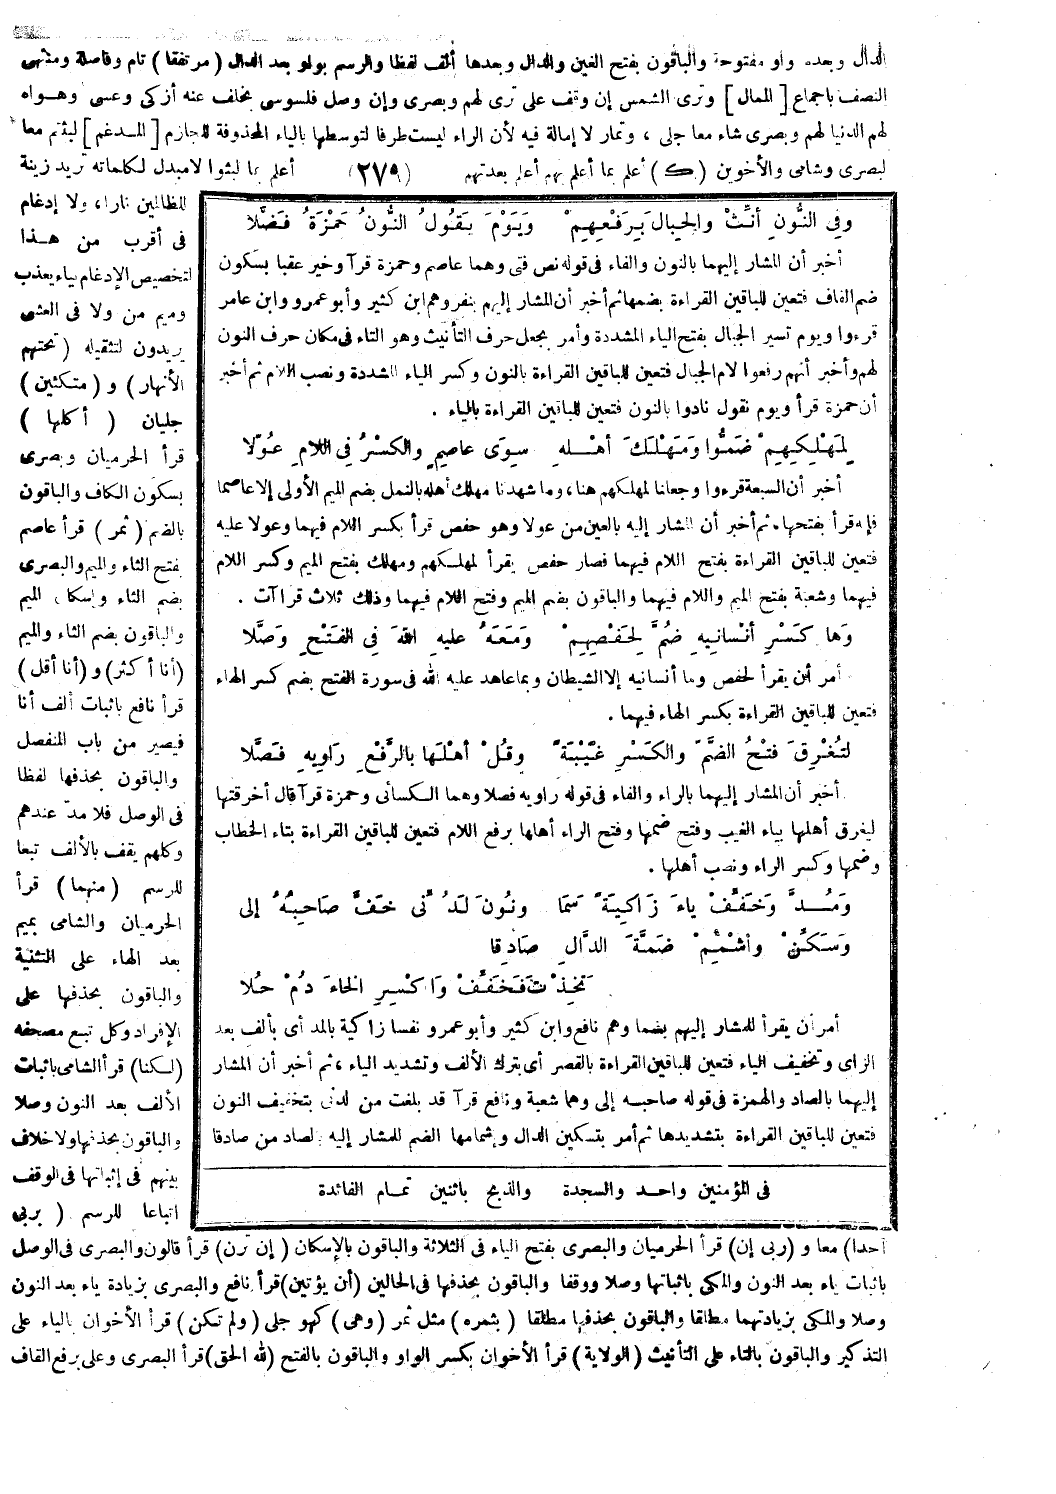 الدال وبعده واو مفتوحة والباقون بفتح الغين والدال وبعدها ألف لفظا والرسم بواو بعد الدال (مرتفقا) تام وفاصلة ومنتهى
النصف باجماع [الممال] وترى الشمس إن وقف على ترى لهم وبصرى وإن وصل فلسوسى بخلف عنه أزكى وعسى وهواه
لهم الدنيا لهم وبصرى شاء معا جلى ، وتمار لا إمالة فيه لأن الراء ليست طرفا لتوسطها بالياء المحذوفة للجازم [المدغم] لبثتم معا
لبصرى وشامى والأخوين (ك) أعلم بما أعلم بهم أعلم بعدتهم (٢٧٩) أعلم بما لبثوا لامبدل لكلماته تريد زينة
وفِى النُّونِ أنِّثْ والجِبالَ بِرَفْعِهِمْ وَيَوْمَ يَقُولُ النُّونُ حَمْزَةُ فَضَّلا
أخبر أن المشار إليهما بالنون والفاء فى قوله نص فتى وهما عاصم وحمزة قرآ وخير عقبا بسكون
ضم القاف فتعين للباقين القراءة بضمها ثم أخبر أن المشار إليهم بنفر وهم ابن كثير وأبو عمرو وابن عامر
قرءوا ويوم تسير الجبال بفتح الياء المشددة وأمر بجعل حرف التأنيث وهو التاء فى مكان حرف النون
لهم وأخبر أنهم رفعوا لام الجبال فتعين للباقين القراءة بالنون وكسر الياء المشددة ونصب اللام ثم أخبر
أن حمزة قرأ ويوم نقول نادوا بالنون فتعين للباقين القراءة بالياء .
لِمَهْلِكِهِمْ ضَمُّوا وَمَهْلَكَ أهْلِهِ سِوَى عاصِمٍ والكَسْرُ فِى اللامِ عُوِّلا
أخبر أن السبعة قرءوا وجعلنا لمهلكهم هنا، وما شهدنا مهلك أهله بالنمل بضم الميم الأولى إلا عاصما
فإنه قرأ بفتحها، ثم أخبر أن المشار إليه بالعين من عولا وهو حفص قرأ بكسر اللام فيهما وعولا عليه
فتعين للباقين القراءة بفتح اللام فيهما فصار حفص يقرأ لمهلكهم ومهلك بفتح الميم وكسر اللام
فيهما وشعبة بفتح الميم واللام فيهما والباقون بضم الميم وفتح اللام فيهما وذلك ثلاث قراآت .
وَها كَسْرِ أنْسانِيهِ ضُمَّ لِحَفْصِهِمْ وَمَعَهُ عليهِ اللهَ فى الفَتْحِ وَصَّلا
أمر أن يقرأ لحفص وما أنسانيه إلا الشيطان وبما عاهد عليه الله فى سورة الفتح بضم كسر الهاء
فتعين للباقين القراءة بكسر الهاء فيهما .
لتُغْرِقَ فَتْحُ الضَّمِّ والكَسْرِ غَيْبَةً وقُلْ أهْلَها بالرَّفْعِ رَاوِيهِ فَصَّلا
أخبر أن المشار إليهما بالراء والفاء فى قوله راويه فصلا وهما الكسائى وحمزة قرآ قال أخرقتها
ليغرق أهلها بياء الغيب وفتح ضمها وفتح الراء أهلها برفع اللام فتعين للباقين القراءة بتاء الخطاب
وضمها وكسر الراء ونصب أهلها .
وَمُدَّ وَخَفِّفْ ياءَ زَاكِيَةً سَمَا ونُونَ لَدُنِّى خَفَّ صَاحِبُهُ إلى
وَسَكِّنْ وأشْمِمْ ضَمَّةَ الدَّالِ صَادِقا
تَخِذْتَ فَخَفِّفْ وَاكْسِرِ الخاءَ دُمْ حُلا
أمر أن يقرأ للمشار إليهم بضما وهم نافع وابن كثير وأبو عمرو نفسا زاكية بالمد أى بألف بعد
الزاى وتخفيف الياء فتعين للباقين القراءة بالقصر أى بترك الألف وتشديد الياء ، ثم أخبر أن المشار
إليهما بالصاد والهمزة فى قوله صاحبه إلى وهما شعبة ونافع قرآ قد بلغت من لدنى بتخفيف النون
فتعين للباقين القراءة بتشديدها ثم أمر بتسكين الدال وإشمامها الضم للمشار إليه بالصاد من صادقا
فى المؤمنين واحد والسجدة والذبح باثنين تمام الفائدة
للظالمين نارا، ولا إدغام
فى أقرب من هذا
لتخصيص الإدغام بباء يعذب
وميم من ولا فى العشى
يريدون لتثقيله (تحتهم
الأنهار) و (متكئين)
جليان (أكلها)
قرأ الحرميان وبصرى
بسكون الكاف والباقون
بالضم (ثمر) قرأ عاصم
بفتح الثاء والميم والبصرى
بضم الثاء وإسكان الميم
والباقون بضم الثاء والميم
(أنا أكثر) و (أنا أقل)
قرأ نافع باثبات ألف أنا
فيصير من باب المنفصل
والباقون بحذفها لفظا
فى الوصل فلا مدّ عندهم
وكلهم يقف بالألف تبعا
للرسم (منهما) قرأ
الحرميان والشامى بميم
بعد الهاء على التثنية
والباقون بحذفها على
الإفراد وكل تبع مصحفه
(لكنا) قرأ الشامى باثبات
الألف بعد النون وصلا
والباقون بحذفها ولا خلاف
بينهم فى إثباتها فى الوقف
اتباعا للرسم (بربى
أحدا) معا و (ربى إن) قرأ الحرميان والبصرى بفتح الياء فى الثلاثة والباقون بالإسكان (إن ترن) قرأ قالون والبصرى فى الوصل
باثبات ياء بعد النون والمكى باثباتها وصلا ووقفا والباقون بحذفها فى الحالين (أن يؤتين) قرأ نافع والبصرى بزيادة ياء بعد النون
وصلا والمكى بزيادتهما مطلقا والباقون بحذفها مطلقا (بثمره) مثل ثمر (وهى) كهو جلى (ولم تكن) قرأ الأخوان بالياء على
التذكير والباقون بالتاء على التأنيث (الولاية) قرأ الأخوان بكسر الواو والباقون بالفتح (لله الحق) قرأ البصرى وعلى برفع القاف